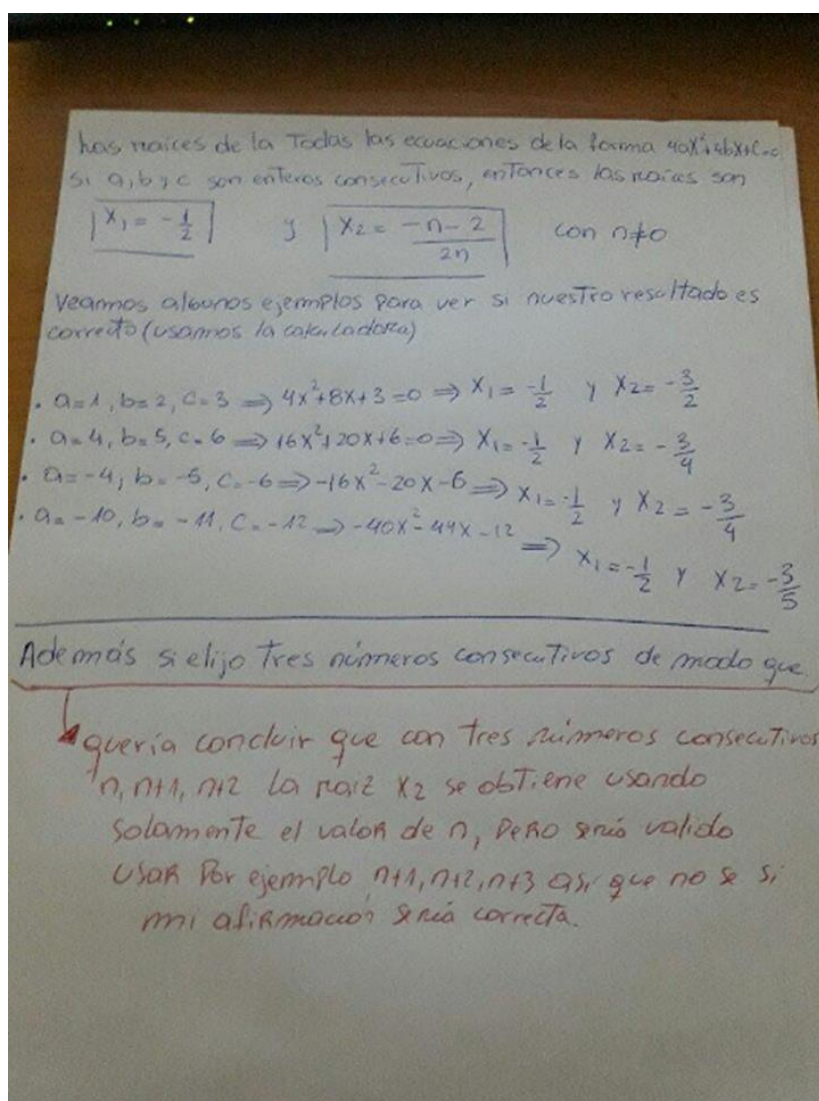 Las raíces de la Todas las ecuaciones de la forma 4ax²+4bx+c=0
Si a, b y c son enteros consecutivos, entonces las raíces son
x₁ = -1/2 y x₂ = (-n-2)/2n con n≠0
Veamos algunos ejemplos para ver si nuestro resultado es
correcto (usamos la calculadora)
. a=1, b=2, c=3 ⇒ 4x²+8x+3=0 ⇒ x₁=-1/2 y x₂=-3/2
. a=4, b=5, c=6 ⇒ 16x²+20x+6=0 ⇒ x₁=-1/2 y x₂=-3/4
. a=-4, b=-5, c=-6 ⇒ -16x²-20x-6 ⇒ x₁=-1/2 y x₂=-3/4
. a=-10, b=-11, c=-12 ⇒ -40x²-44x-12 ⇒ x₁=-1/2 y x₂=-3/5
Además si elijo tres números consecutivos de modo que
quería concluir que con tres números consecutivos
n, n+1, n+2 la raiz x₂ se obtiene usando
solamente el valor de n, pero sería valido
usar por ejemplo n+1, n+2, n+3 así que no se si
mi afirmación sería correcta.